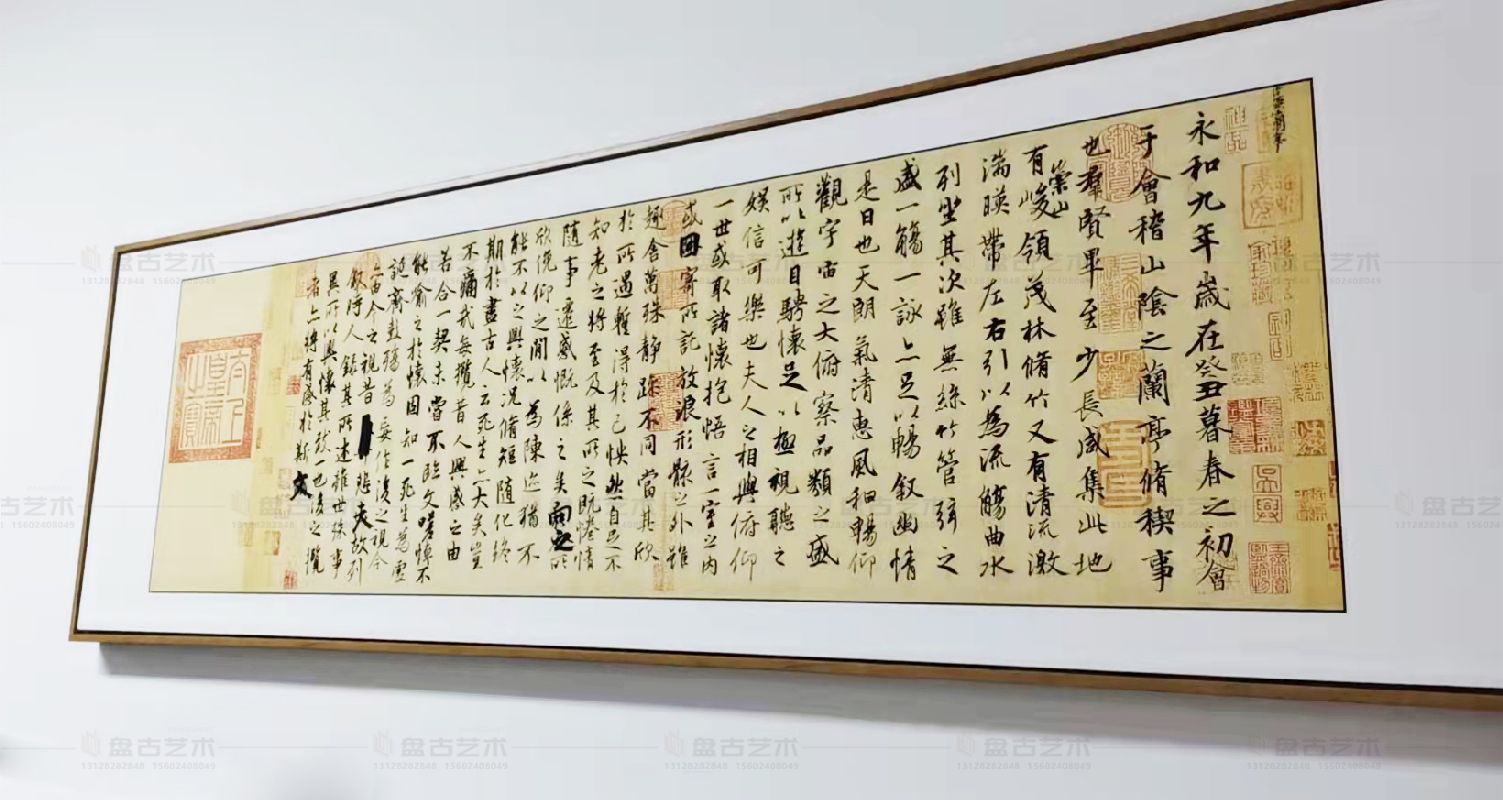 永和九年歲在癸丑暮春之初會
于會稽山陰之蘭亭脩稧事
也羣賢畢至少長咸集此地
有崇山峻領茂林脩竹又有清流激
湍暎帶左右引以為流觴曲水
列坐其次雖無絲竹管弦之
盛一觴一詠亦足以暢叙幽情
是日也天朗氣清惠風和暢仰
觀宇宙之大俯察品類之盛
所以遊目騁懷足以極視聽之
娛信可樂也夫人之相與俯仰
一世或取諸懷抱悟言一室之內
或因寄所託放浪形骸之外雖
趣舍萬殊靜躁不同當其欣
於所遇暫得於己怏然自足不
知老之將至及其所之既惓情
隨事遷感慨係之矣向之所
欣俛仰之閒以為陳迹猶不
能不以之興懷況脩短隨化終
期於盡古人云死生亦大矣豈
不痛哉每攬昔人興感之由
若合一契未嘗不臨文嗟悼不
能喻之於懷固知一死生為虛
誕齊彭殤為妄作後之視今
亦由今之視昔悲夫故列
敘時人錄其所述雖世殊事
異所以興懷其致一也後之攬
者亦將有感於斯文
太上皇帝之寶
盤古艺术
13128282848 15602408049